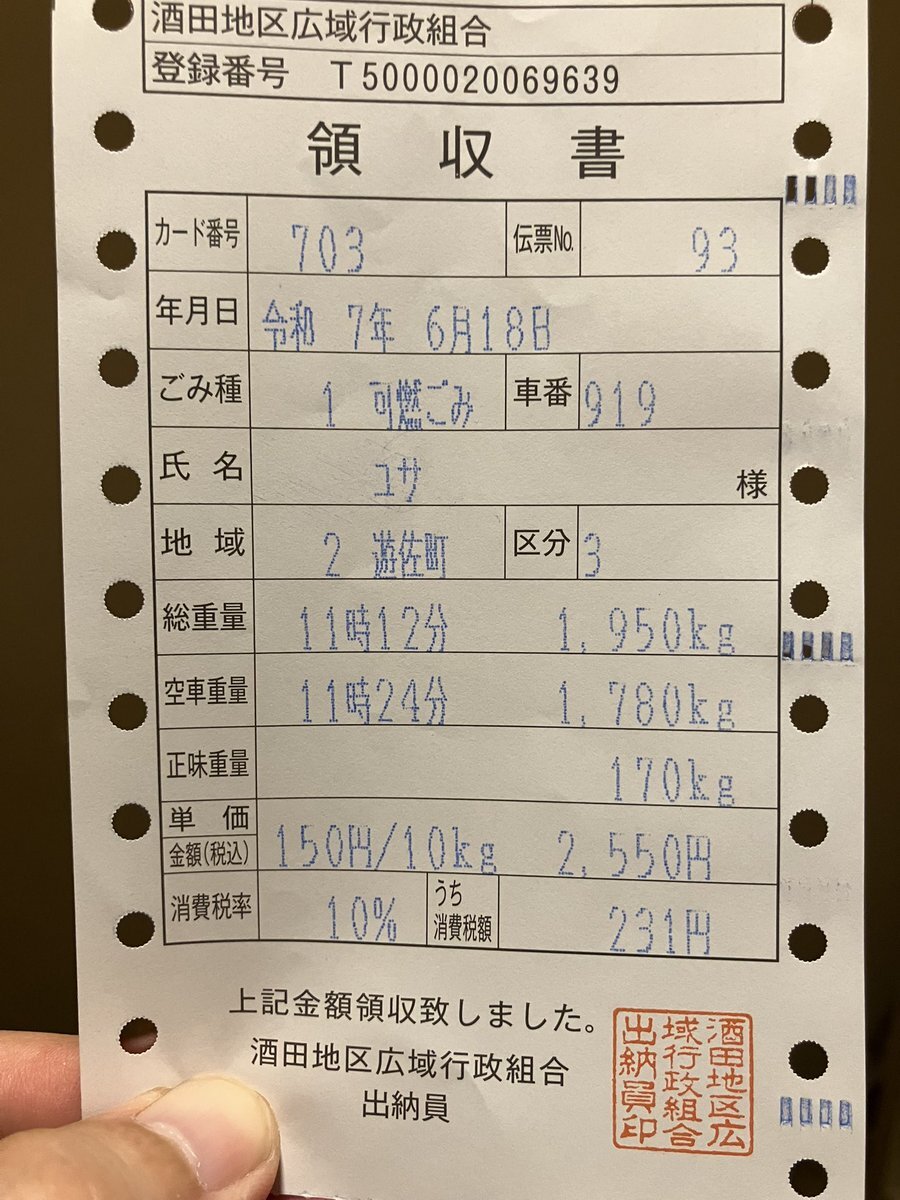 酒田地区広域行政組合
登録番号 T5000020069639
領収書
カード番号 703 伝票No. 93
年月日 令和 7年 6月18日
ごみ種 1 可燃ごみ 車番 919
氏名 ユサ 様
地域 2 遊佐町 区分 3
総重量 11時12分 1,950kg
空車重量 11時24分 1,780kg
正味重量 170kg
単価
金額(税込) 150円/10kg 2,550円
消費税率 10% うち消費税額 231円
上記金額領収致しました。
酒田地区広域行政組合
出納員
酒田地区広
域行政組合
出納員印